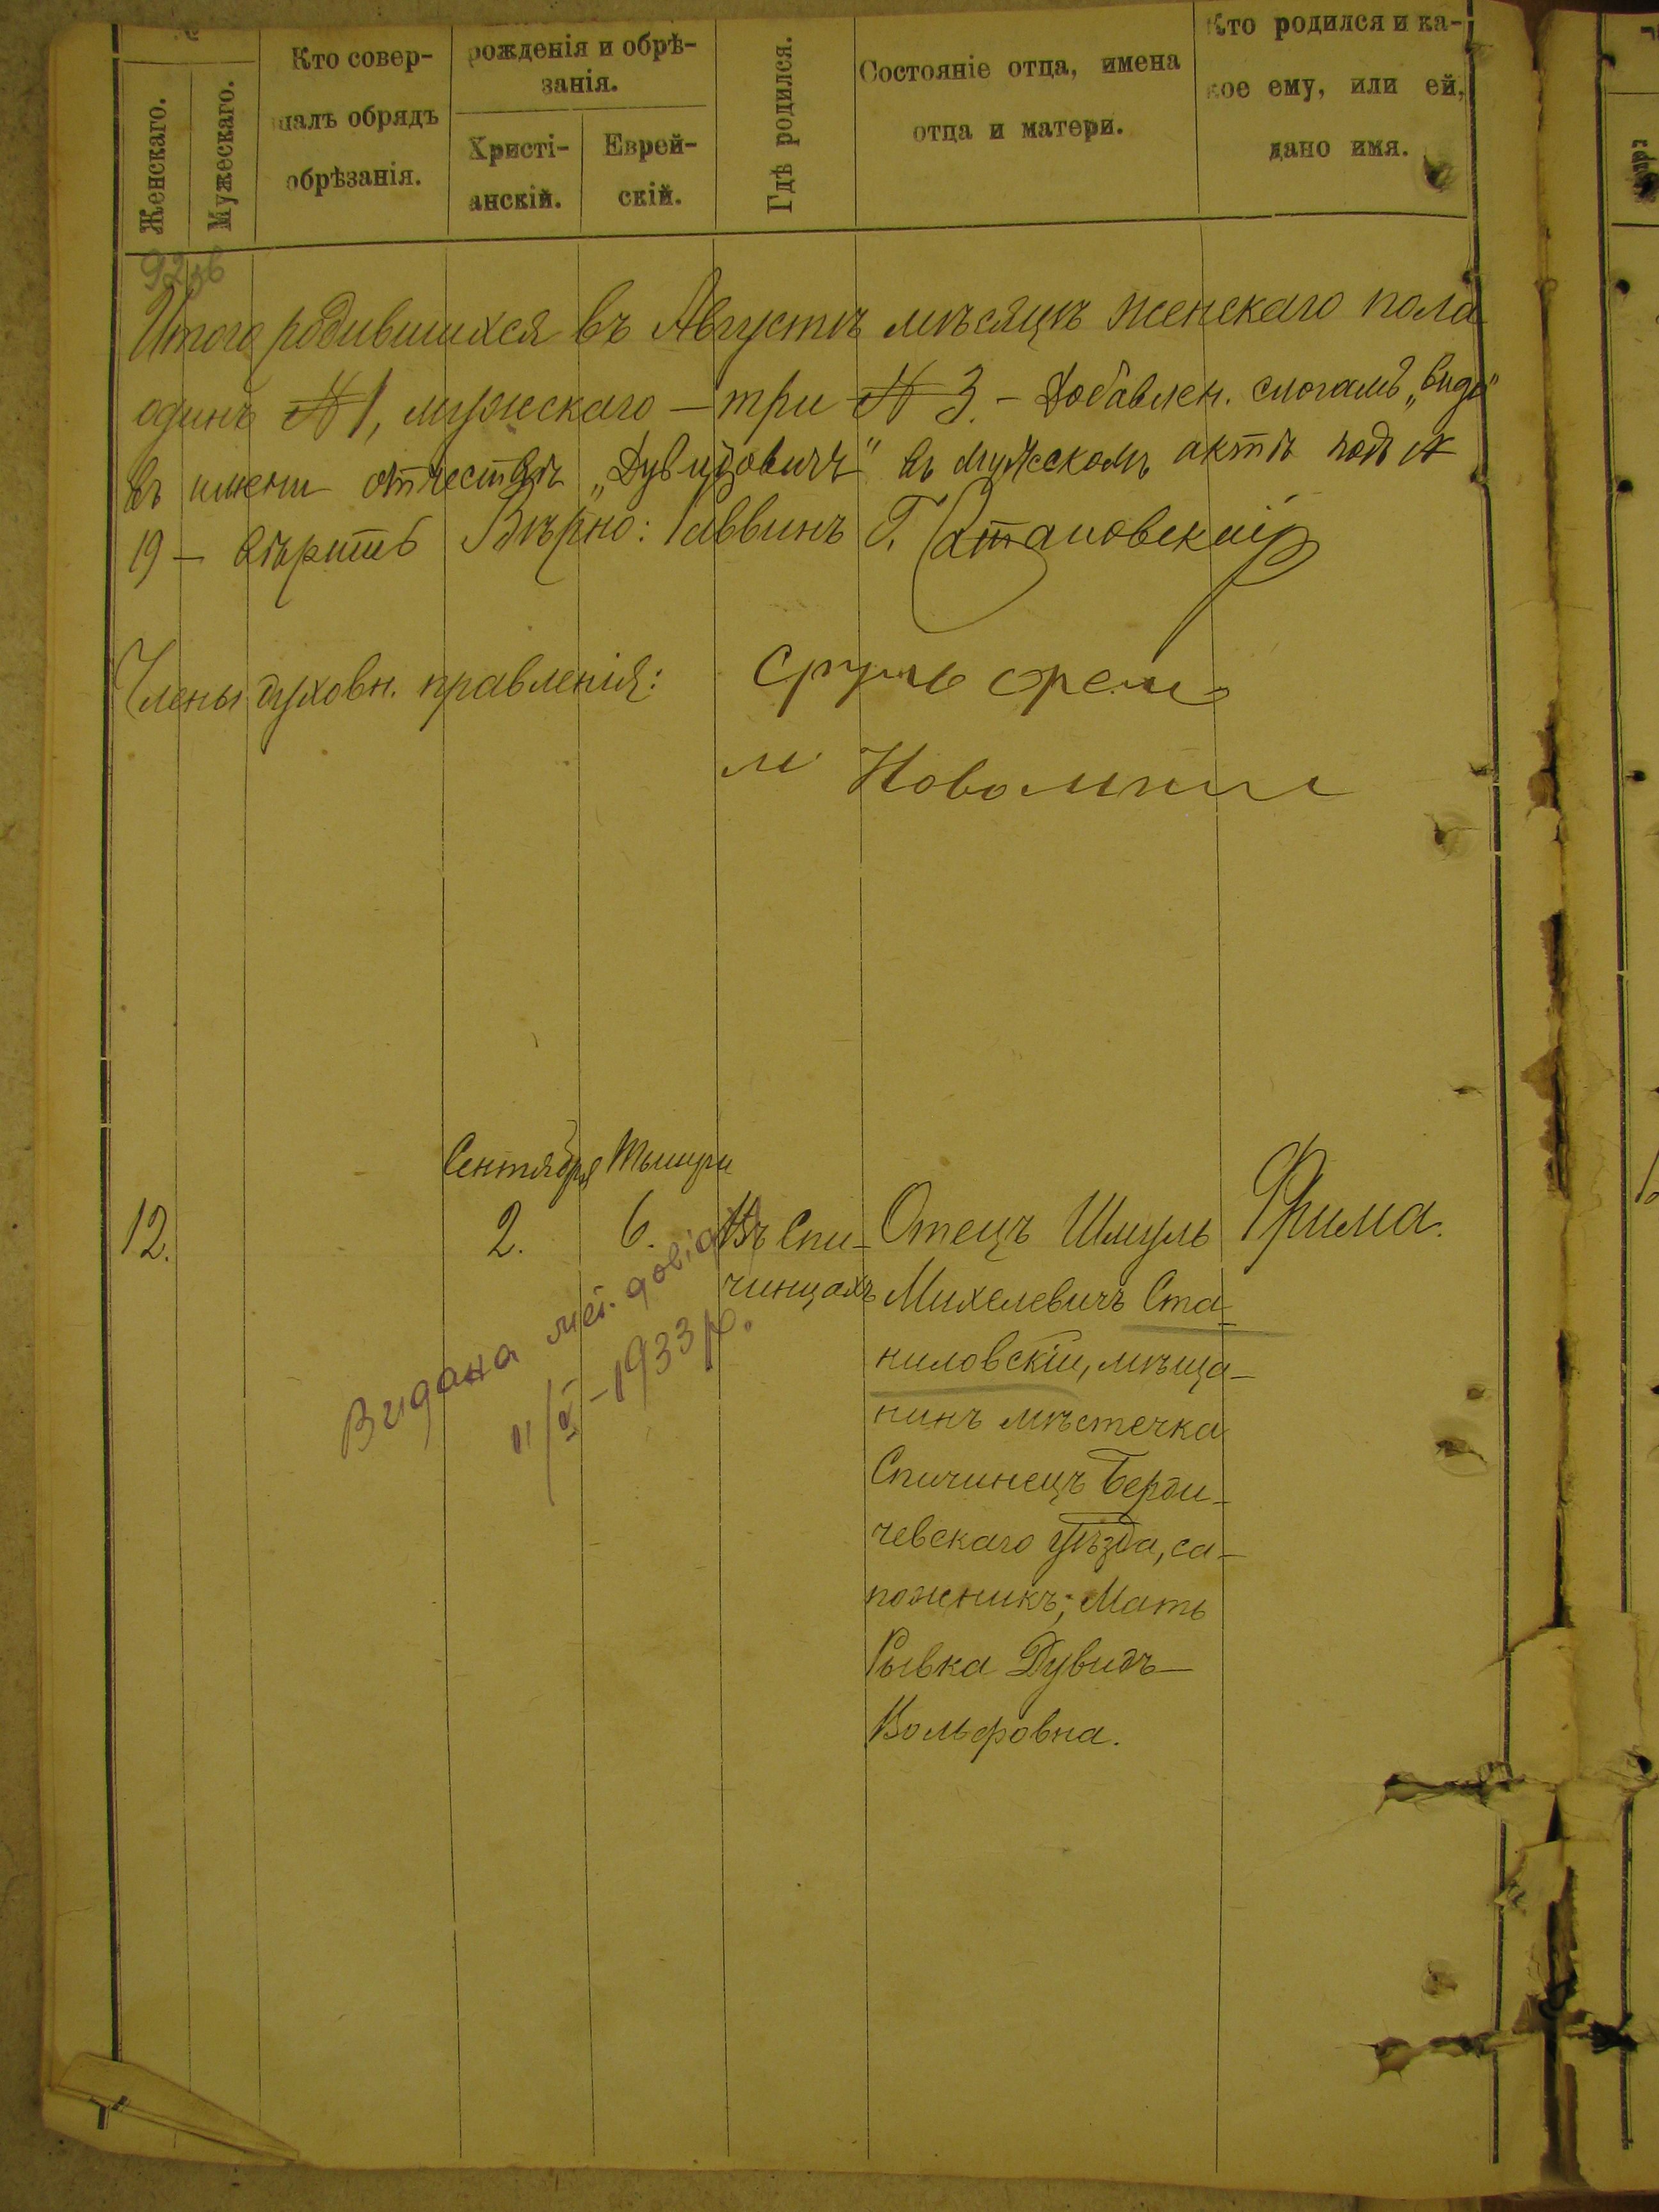 Женскаго.
Мужескаго.
Кто совер-
шалъ обрядъ
обрѣзанія.
рожденія и обрѣ-
занія.
Христі-
анскій.
Еврей-
скій.
Гдѣ родился.
Состояніе отца, имена
отца и матери.
Кто родился и ка-
кое ему, или ей,
дано имя.
Итого родившихся въ Августѣ мѣсяцѣ женскаго пола
одинъ № 1, мужскаго — три № 3. — Добавлен.
въ имени отчествѣ „Дувидовичъ" въ мужскомъ актѣ подъ №
19 — вѣрить Вѣрно: Раввинъ Г.
Члены духовн. правленія:
Сруль
М
Сентября Тышри
12. 2. 6. Въ Спи-
чинцахъ
Отецъ Шмуль
Михелевичъ Ста-
ниловскій, мѣща-
нинъ мѣстечка
Спичинецъ Берди-
чевскаго уѣзда, са-
пожникъ; Мать
Рывка Дувидъ-
Вольфовна.
Фрима.
Видана
1933 р.